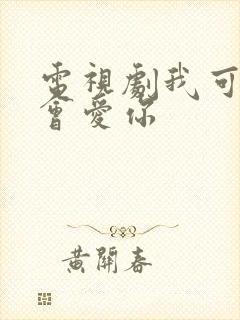 電視劇我可
會愛你
黃開春